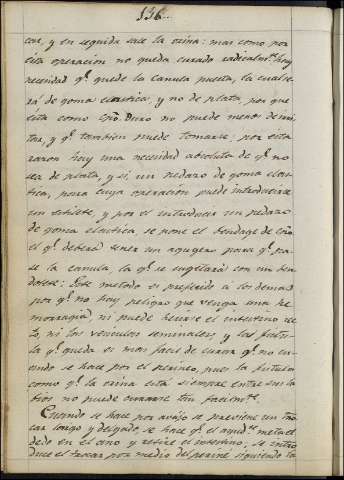 136..
car, y en seguida sale la orina: mas como por
esta operacion no queda curado radicalmte. hay
necesidad q.e quede la canula puesta, la cual se-
rá de goma elastica, y no de plata, por que
esta como cpo. duro no puede menos de irri
tar, y q.e tambien puede tomarse; por esta
razon hay una necesidad absoluta de q.e no
sea de plata, y si un pedazo de goma elas-
tica, para cuya operacion puede introducirse
un estilete, y por el introducir un pedazo
de goma elastica, se pone el bendage de
el q.e deberá tener un agugero para q.e pa-
se la canula, la q.e se sugetará con un ben
dolete: Este metodo es preferido á los demas
por q.e no hay peligro que venga una he
morragia, ni puede herirse el intestino rec-
to, ni las vesiculas seminales, y la fistu-
la q.e queda es mas facil de curar q.e no cu-
ando se hace por el perineo, pues la fistula
como q.e la orina está siempre entre sus la
bios no puede curarse tan facilmte.
Cuando se hace por avajo se previene un tro
car largo y delgado, se hace q.e el ayudte. meta el
dedo en el ano y retire el intestino, se intro
duce el trocar por medio del periné siguiendo la